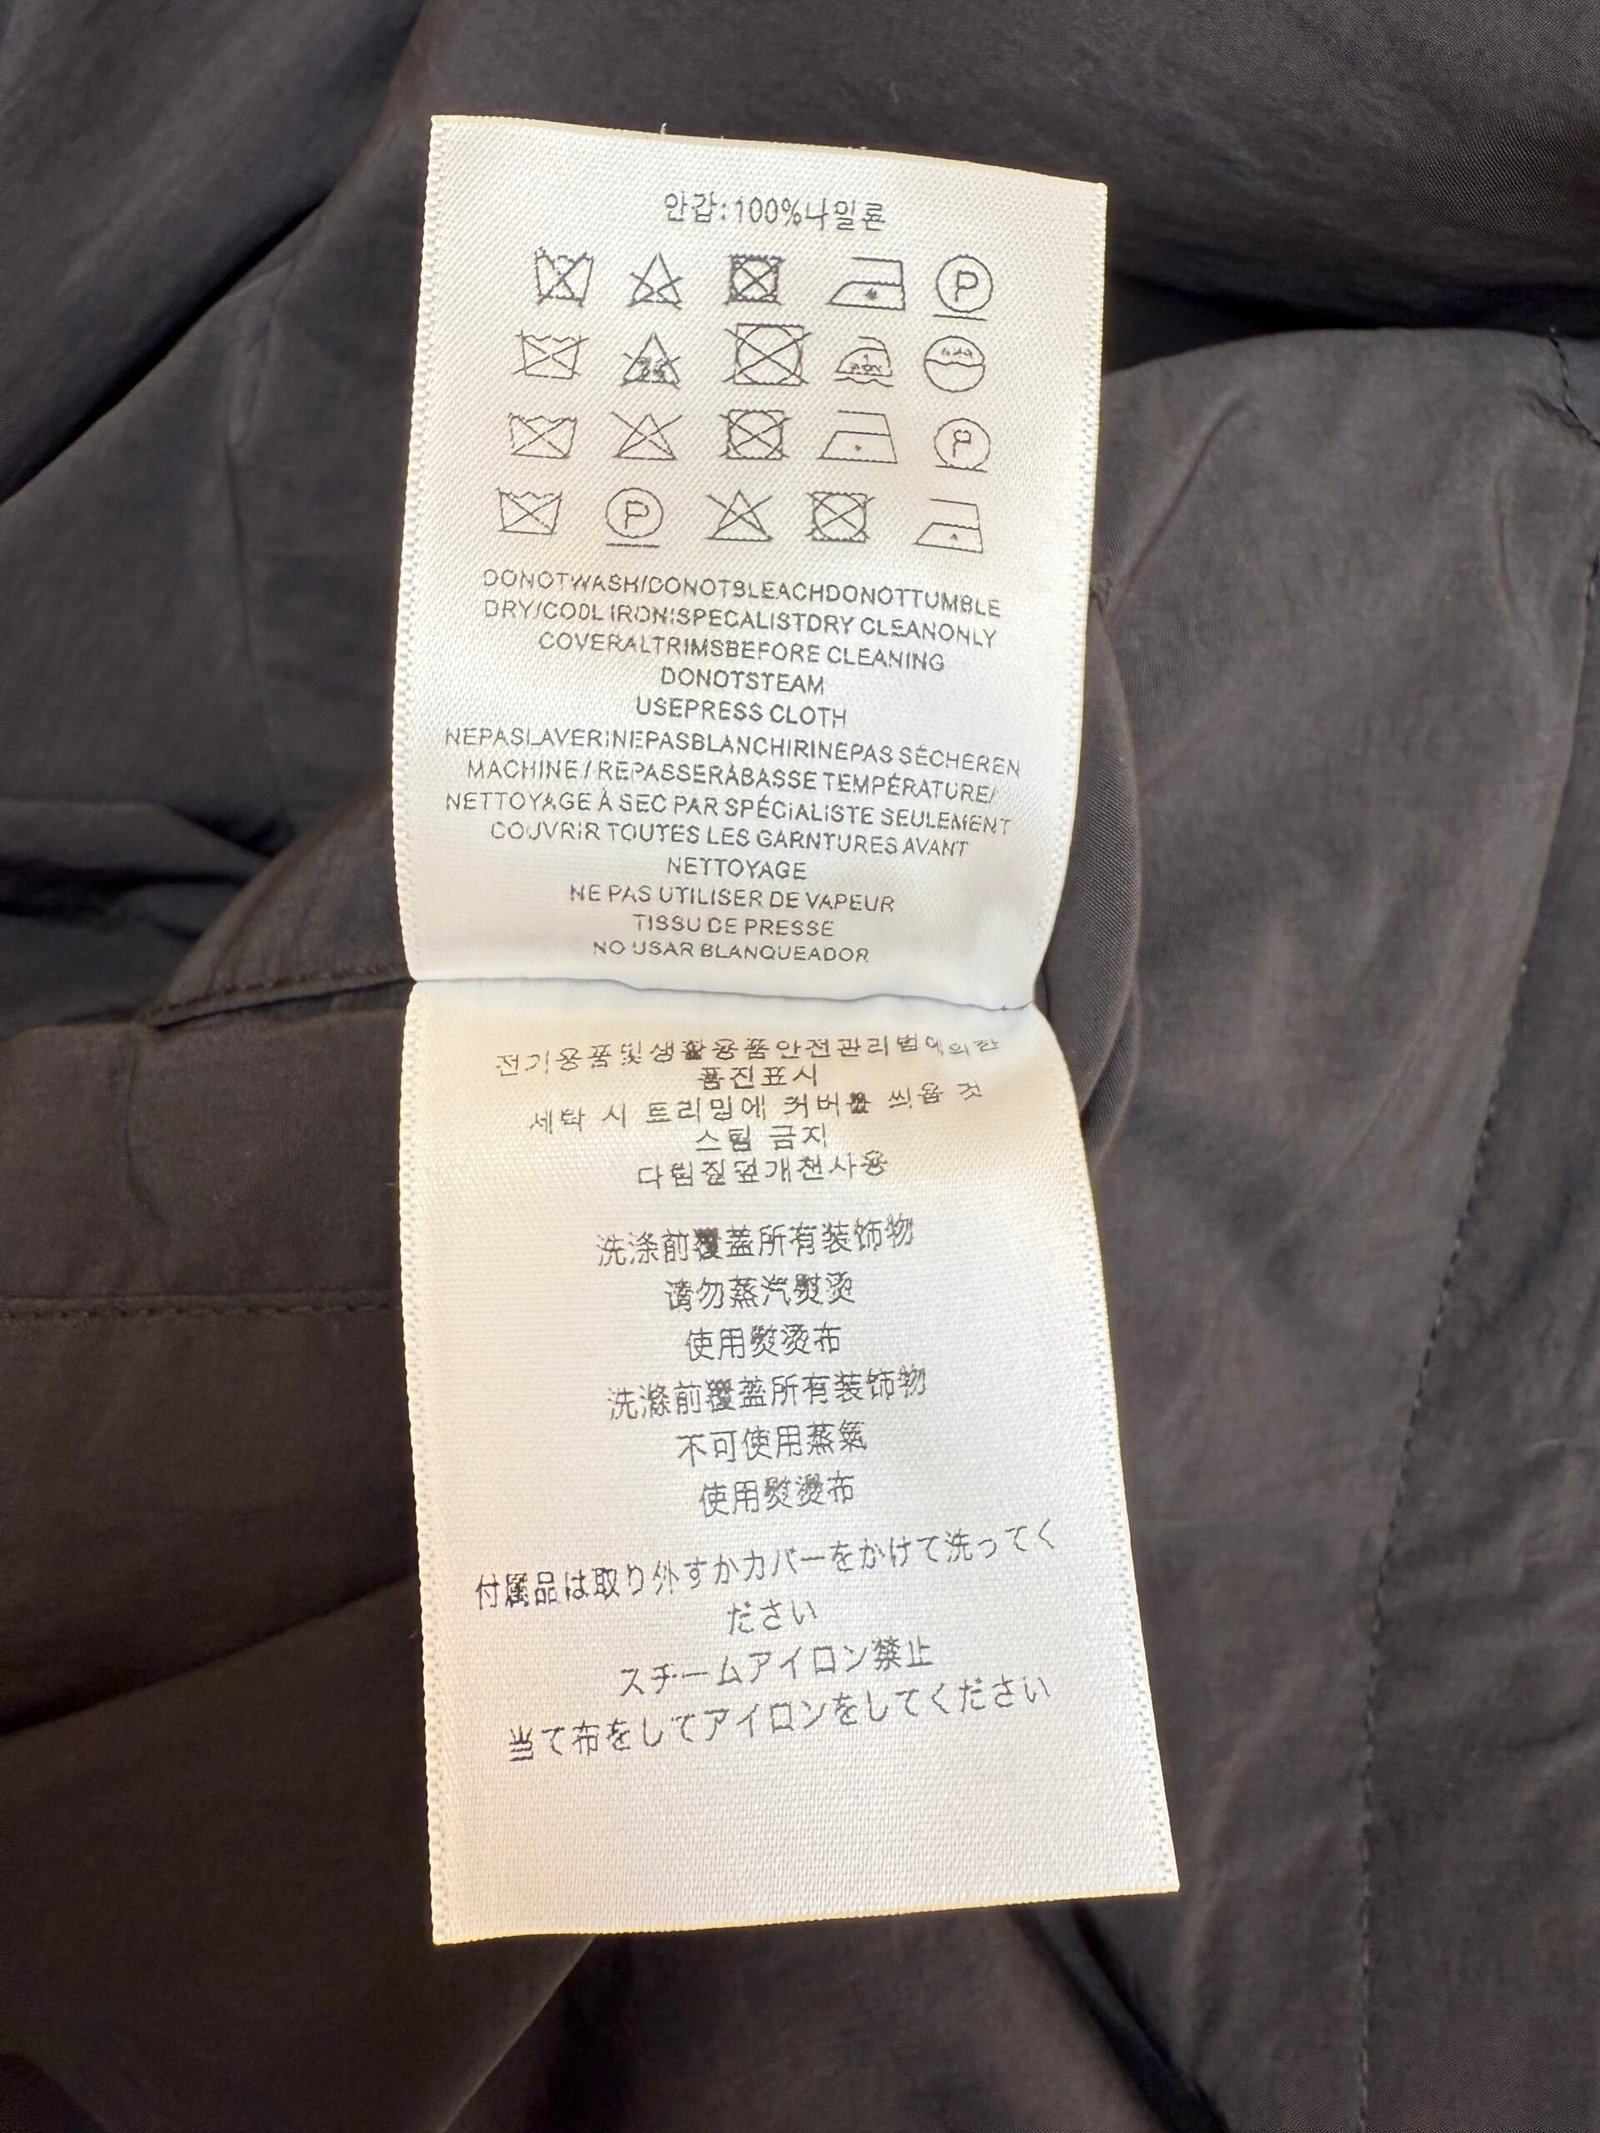 안감:100%나일론
DONOTWASH/DONOTBLEACHDONOTTUMBLE
DRY/COOL IRON!SPECALISTDRY CLEANONLY
COVERALTRIMSBEFORE CLEANING
DONOTSTEAM
USEPRESS CLOTH
NEPASLAVERINEPASBLANCHIRINEPAS SÉCHEREN
MACHINE / REPASSERÀBASSE TEMPÉRATURE/
NETTOYAGE À SEC PAR SPÉCIALISTE SEULEMENT
COUVRIR TOUTES LES GARNTURES AVANT
NETTOYAGE
NE PAS UTILISER DE VAPEUR
TISSU DE PRESSE
NO USAR BLANQUEADOR
전기용품및생활용품안전관리법에의한
품진표시
세탁 시 트리밍에 커버를 씌울 것
스팀 금지
다림질덮개천사용
洗涤前覆盖所有装饰物
请勿蒸汽熨烫
使用熨烫布
洗滌前覆蓋所有装饰物
不可使用蒸氣
使用熨燙布
付属品は取り外すかカバーをかけて洗ってく
ださい
スチームアイロン禁止
当て布をしてアイロンをしてください